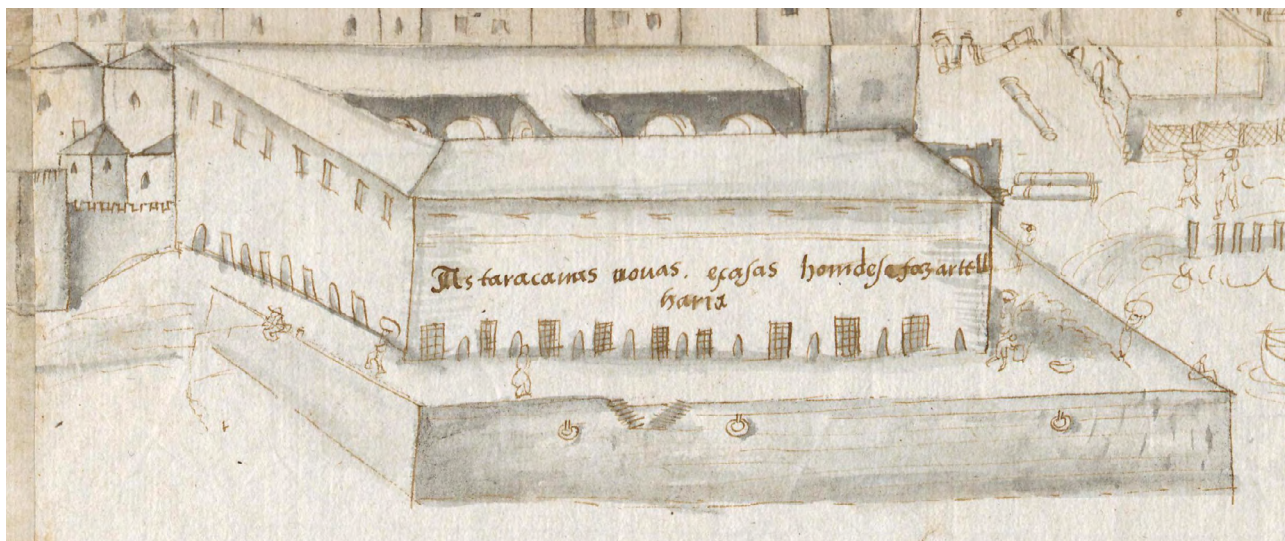 As taracanas nouas. e casas homde se faz artell
haria